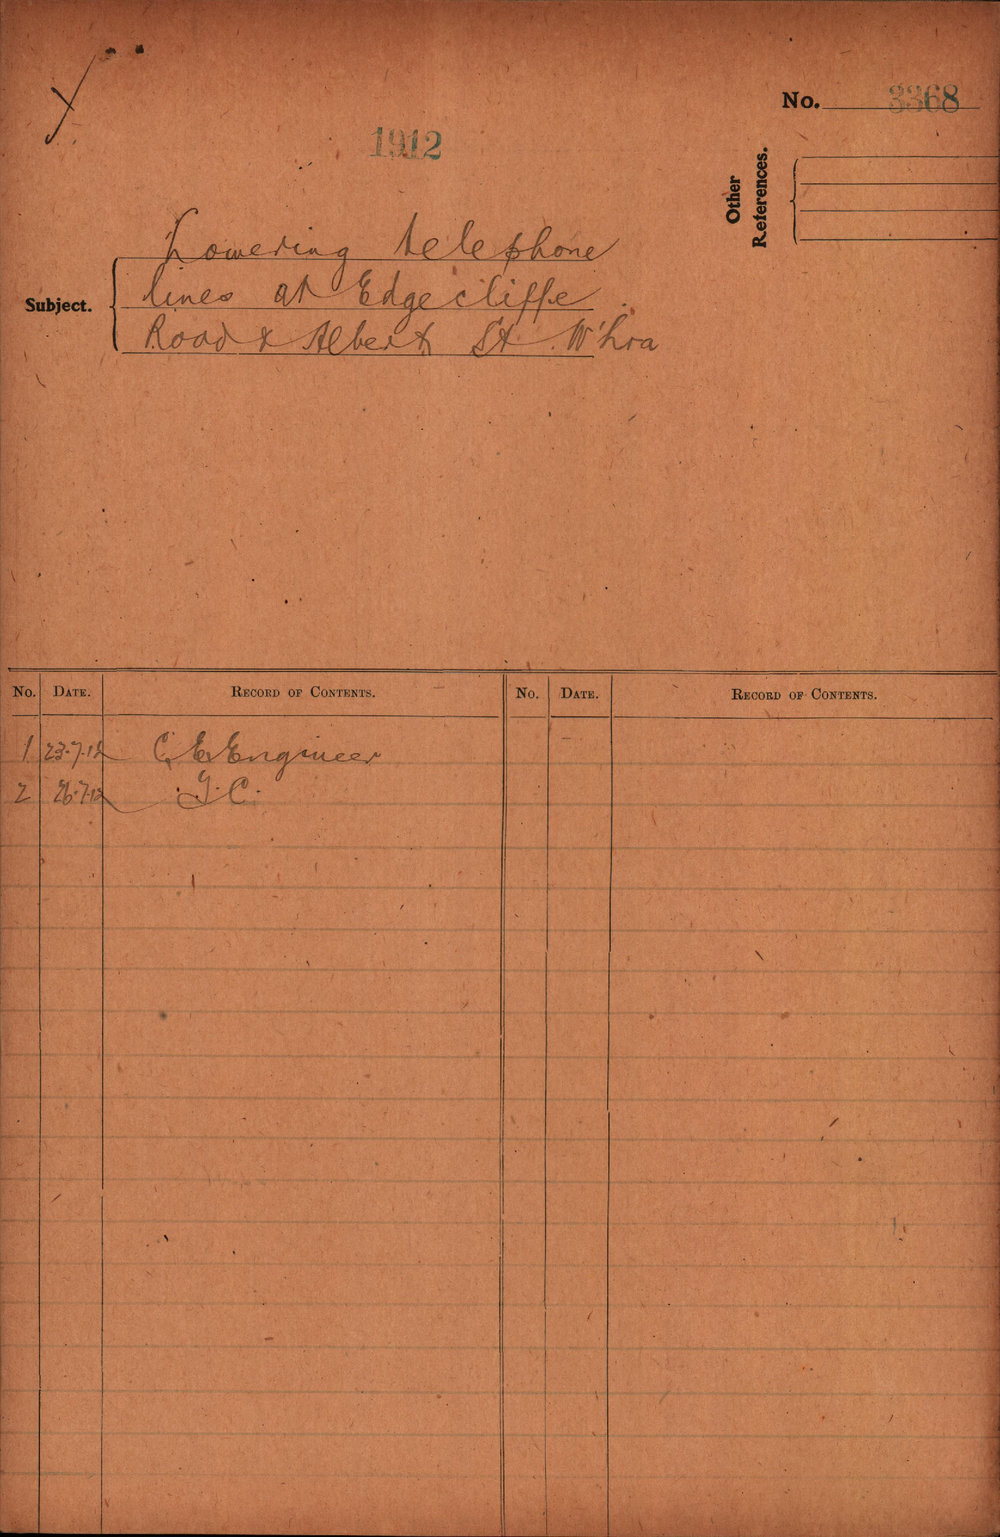 No. 3368
1912
Other
References.
Subject.
Lowering telephone
lines at Edgecliffe
Road & Albert St W'hra
No. DATE. RECORD OF CONTENTS. No. DATE. RECORD OF CONTENTS.
1 23.7.12 C E Engineer
2 26.7.12 T.C.